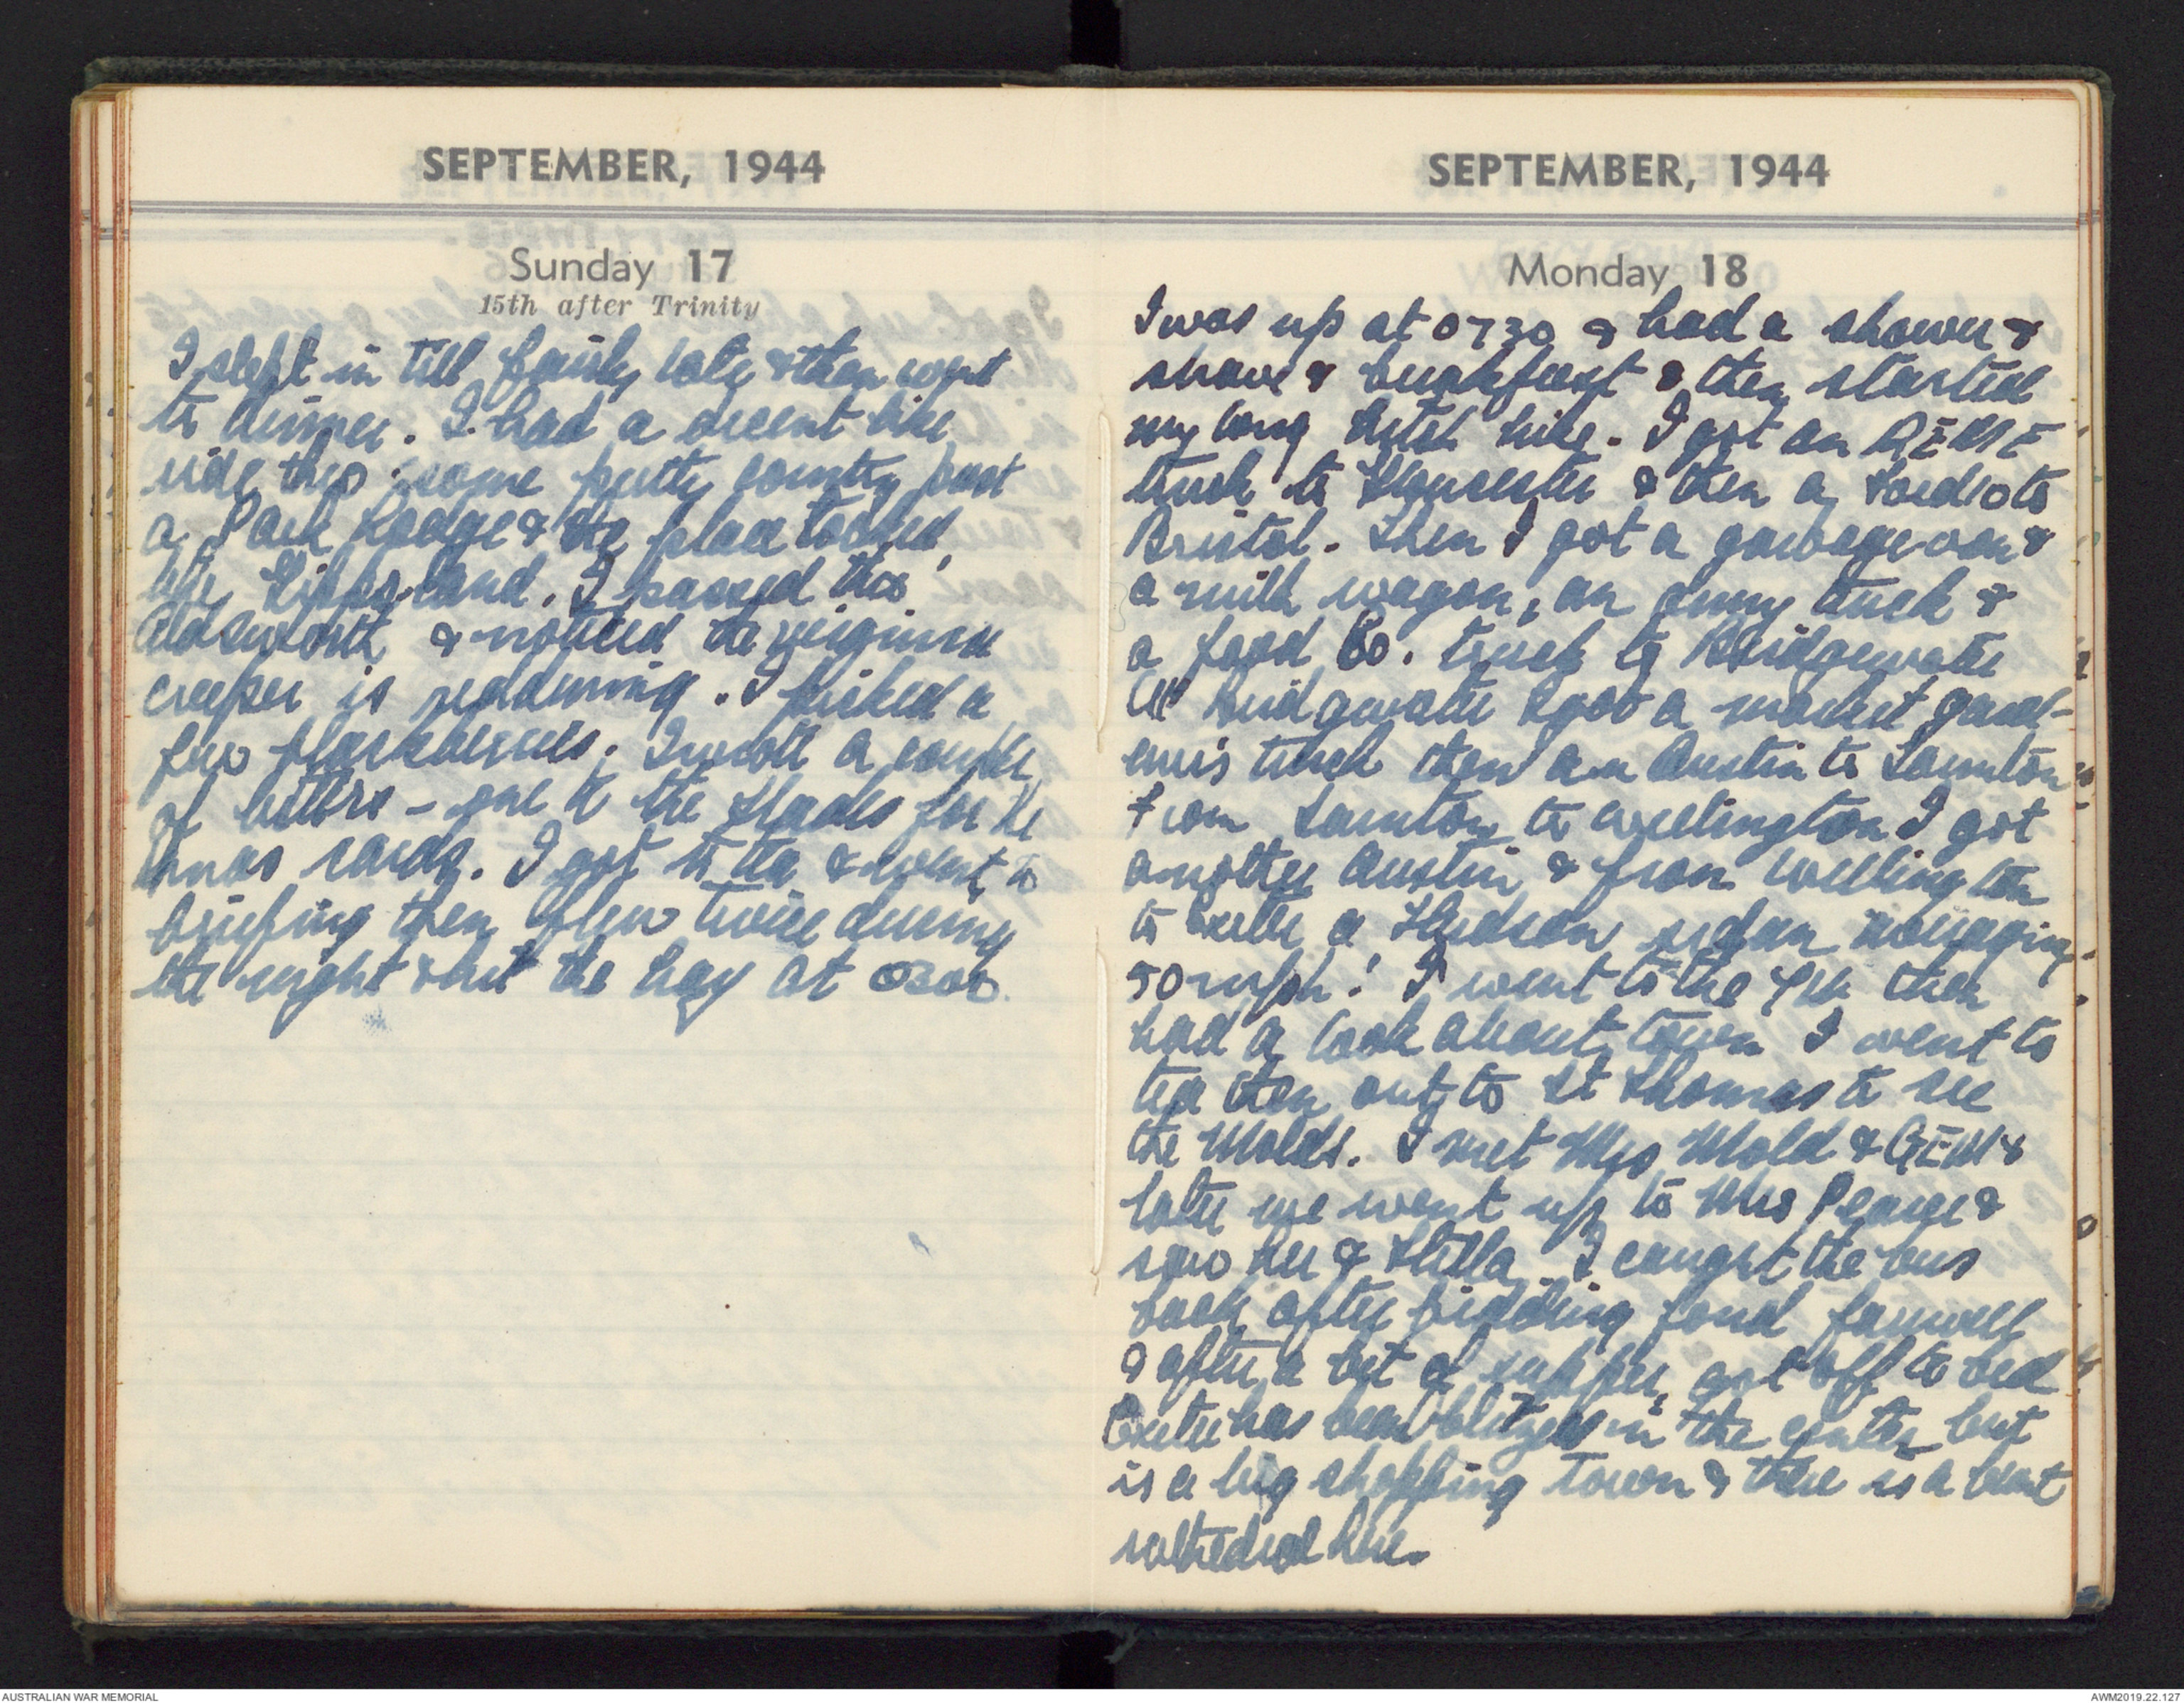 SEPTEMBER, 1944
Sunday 17
15th after Trinity
I slept in till fairly late & then went
to dinner. I had a decent bike
ride thro' some pretty country past
a Park Lodge & the place looked
like Gippsland. I passed thro'
Aldsworth & noticed the virginia
creeper is reddening. I picked a
few blackberries. I wrote a couple
of letters - one to the Slades for the
Xmas cards. I got to tea & went to
briefing then flew twice during
the night & hit the hay at 0300.
SEPTEMBER, 1944
Monday 18
I was up at 0730 & had a shower &
shave & breakfast & then started
my long hitch hike. I got an REME
truck to Gloucester & then a to
Bristol. Then I got a garbage van &
a milk wagon, an army truck &
a food Co. truck to Bridgewater
At Bridgewater I got a market gard-
ener's truck then an Austin to Taunton
From Taunton to Wellington I got
another Austin & from Wellington
to Exeter a Hudson sedan averaging
50 mph! I went to the YM then
had a look about town I went to
tea then out to St Thomas to see
the Molds. I met Mrs Mold & GEM &
later we went up to Mrs Pearse &
saw her & Stella. I caught the bus
back after bidding fond farewell
& after a bit of supper, got off to bed
Exeter has been blitzed in the center but
is a big shopping town & there is a beaut
cathedral here.
AUSTRALIAN WAR MEMORIAL
AWM2019.22.127